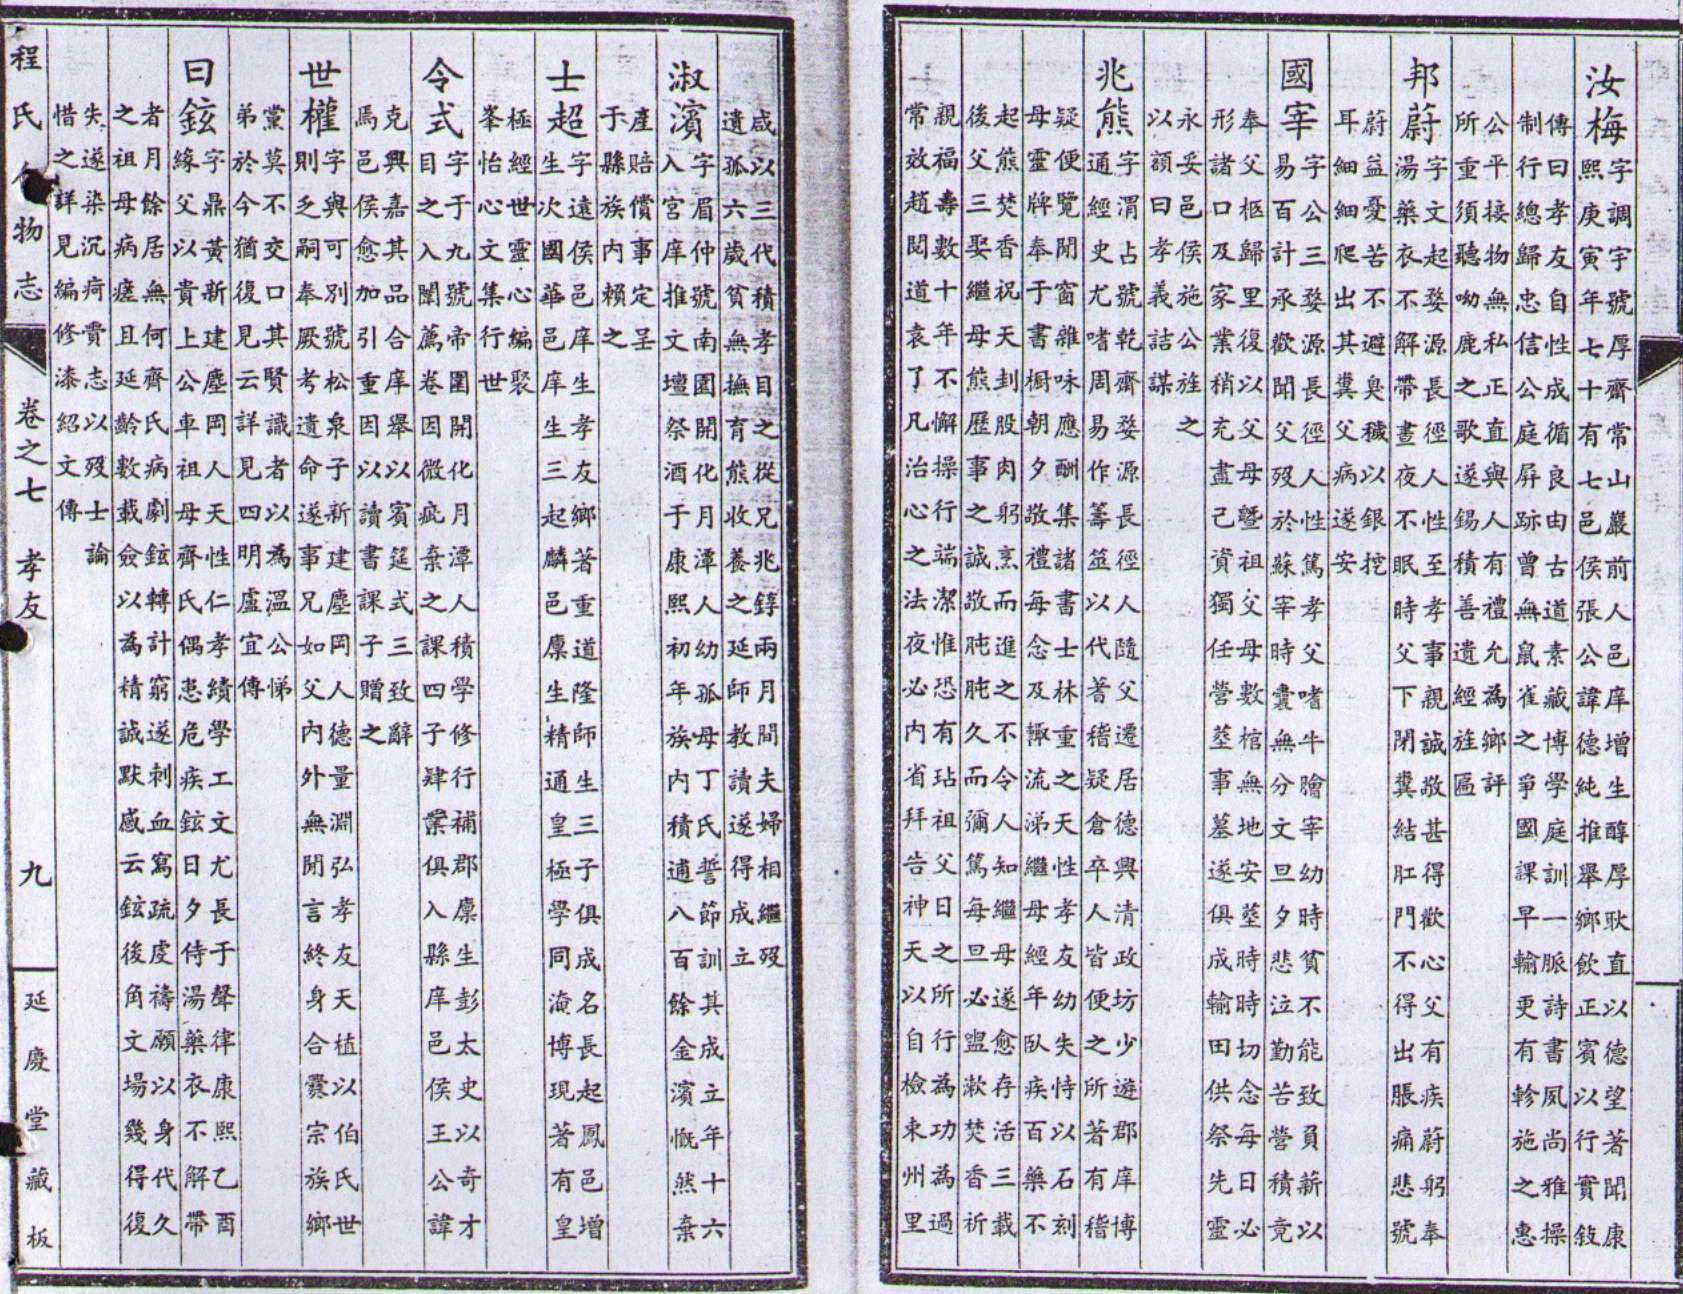 汝梅字調宇號厚齊常山嚴前人邑庠增生醇厚耿直以德望著聞康
熙庚寅年七十有七邑侯張公諱德純推舉鄉飲正賓以行實敍
傳曰孝友自性成循良由古道素藏博學庭訓一脈詩書夙尚雅操
制行總歸忠信公庭屏跡曾無鼠雀之爭國課早輸更有軫施之惠
公平接物無私正直與人有禮允為鄉評
所重須聽呦鹿之歌遂錫積善遺經旌區
邦蔚字文起婺源長徑人性至孝事親誠敬甚得歡心父有疾蔚躬奉
湯藥衣不解帶晝夜不眠時父下閉糞結肛門不得出脹痛悲號
蔚益憂苦不避臭穢以銀挖
耳細細爬出其糞父病遂安
國宰字公三婺源長徑人性篤孝父嗜牛膾宰幼時貧不能致員薪以
易百計承歡聞父歿於蘇宰時囊無分文旦夕悲泣勤苦營積竟
奉父柩歸里復以父母暨祖父母數棺無地安塟時時切念每日必
形諸口及家業稍充盡己資獨任營塟事墓遂俱成輸田供祭先靈
永妥邑侯施公旌之
以額曰孝義詒謀
兆熊字渭占號乾齊婺源長徑人隨父遷居德興清政坊少遊郡庠博
通經史尤嗜周易作籌筮以代著稽疑倉卒人皆便之所著有稽
疑便覽閒窗雜咏應酬集諸書士林重之天性孝友幼失恃以石刻
母靈牌奉于書櫥朝夕敬禮每念及輒流涕繼母經年臥疾百藥不
起熊焚香祝天刲股肉躬烹而進之不令人知繼母遂愈存活三載
後父三娶繼母熊歷事之誠敬肫肫久而彌篤每旦必盥漱焚香祈
親福壽數十年不懈操行端潔惟恐有玷祖父日之所行為功為過
常效趙閱道袁了凡治心之法夜必內省拜告神天以自檢束州里
咸以三代積孝目之從兄兆錞兩月間夫婦相繼歿
遺孤六歲貧無撫育熊收養之延師教讀遂得成立
淑濱字眉仲號南園開化月潭人幼孤母丁氏誓節訓其成立年十六
入宮庠推文壇祭酒于康熙初年族內積逋八百餘金濱慨然棄
產賠償事定呈
于縣族內賴之
士超字遠侯邑庠生孝友鄉著重道隆師生三子俱成名長起鳳邑增
生次國華邑庠生三起麟邑廩生精通皇極學同淹博現著有皇
極經世靈心編聚
峯怡心文集行世
令式字于九號帝圍開化月潭人積學修行補郡廩生彭太史以奇才
目之入闈薦卷因微疵棄之課四子肄業俱入縣庠邑侯王公諱
克興嘉其品合庠舉以賓筵式三致辭
馬邑侯愈加引重因以讀書課子贈之
世權字與可別號松泉子新建塵岡人德量淵弘孝友天植以伯氏世
則乏嗣奉厥考遺命遂事兄如父內外無閒言終身合爨宗族鄉
黨莫不交口其賢識者以為溫公悌
弟於今猶復見云詳見四明盧宜傳
曰鉉字鼎黃新建塵岡人天性仁孝績學工文尤長于聲律康熙乙酉
緣父以貴上公車祖母齊氏偶患危疾鉉日夕侍湯藥衣不解帶
者月餘居無何齊氏病劇鉉轉計窮遂刺血寫疏虔禱願以身代久
之祖母病瘥且延齡數載僉以為精誠默感云鉉後角文場幾得復
失遂染沉疴賫志以歿士論
惜之詳見編修漆紹文傳
程氏人物志 卷之七 孝友 九 延慶堂藏板